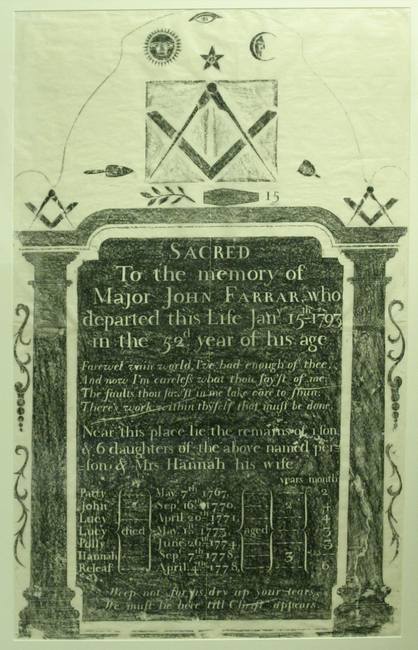 15
SACRED
To the memory of
Major JOHN FARRAR, who
departed this Life Janʸ 15ᵗʰ 1793
in the 52ᵈ year of his age
Farewel vain world, I've had enough of thee,
And now I'm careleſs what thou ſayſt of me:
The faults thou ſawſt in me take care to ſhun,
There's work within thyſelf that muſt be done,
Near this place lie the remains of 1 ſon
& 6 daughters of the above named per-
ſon & Mrs Hannah his wife
years month
Patty May 7ᵗʰ 1767, 2
John Sep. 16 1770, 2 4
Lucy April 20ᵗʰ 1771, 4
Lucy died May 13 1773 aged 3
Polly June 26ᵗʰ 1774 3
Hannah Sep. 7ᵗʰ 1778, 3
Releaf April 4ᵗʰ 1778, 6
Weep not for us dry up your tears,
We muſt lie here till Chriſt appears.